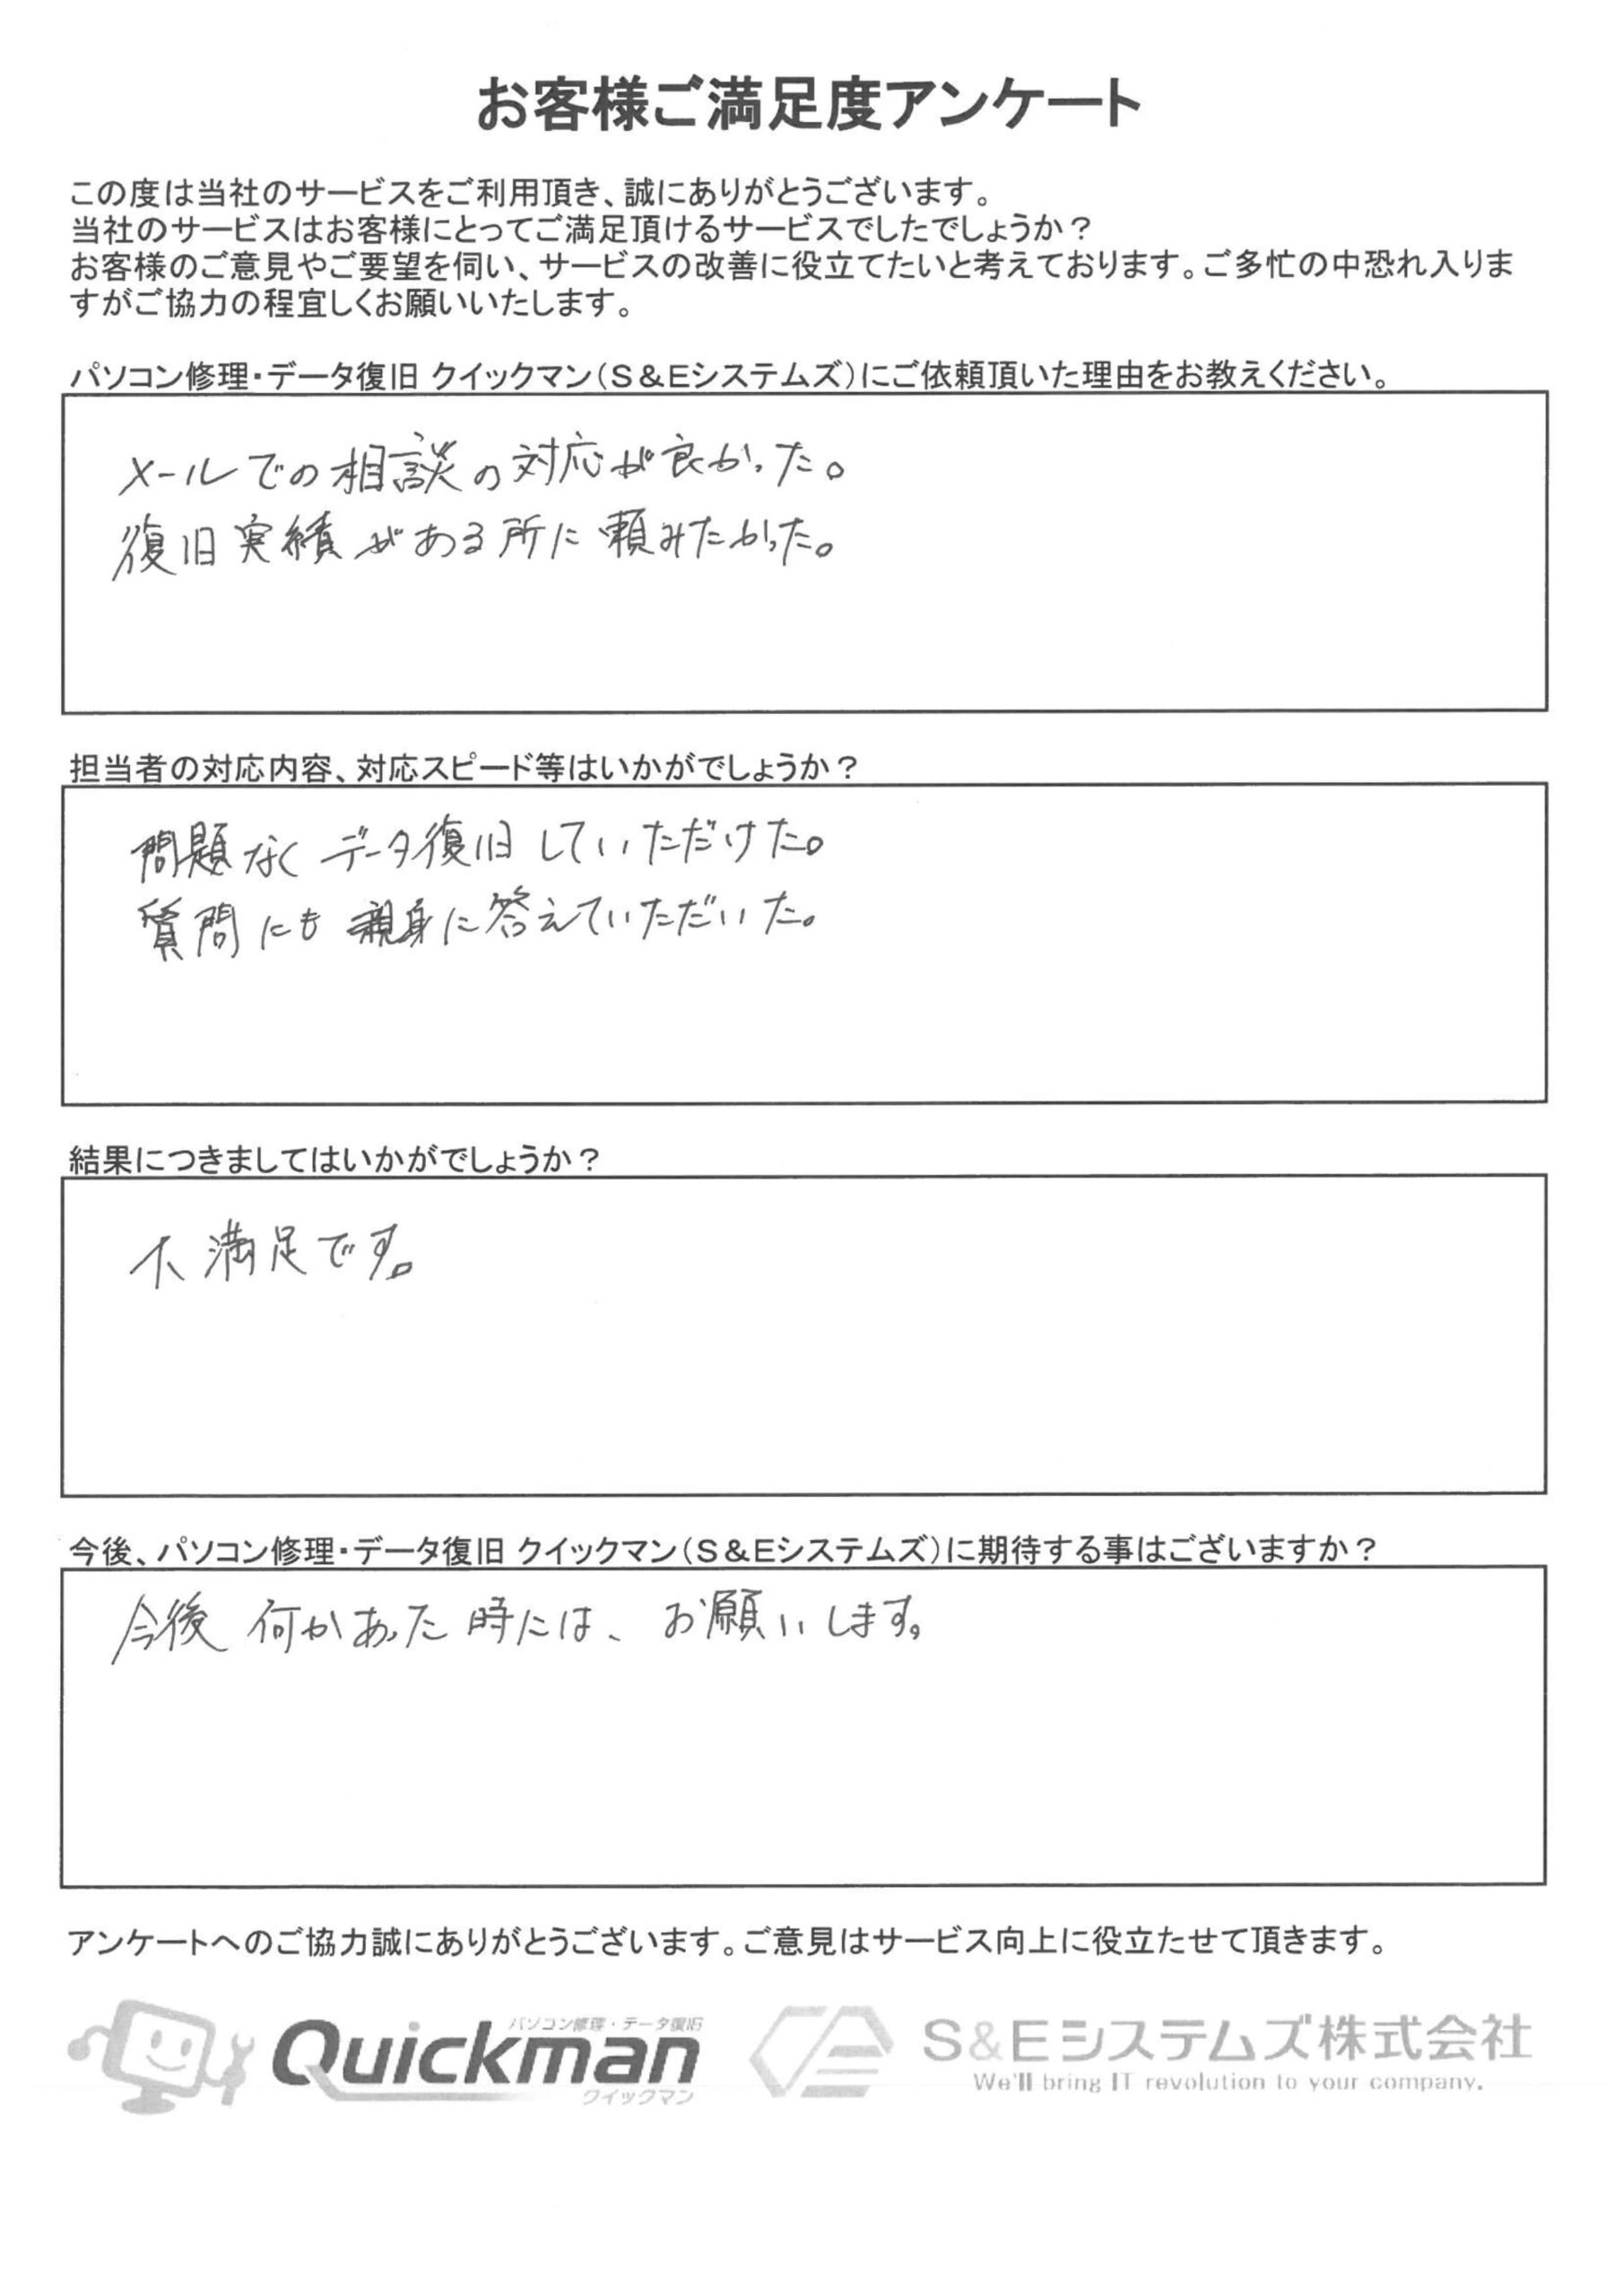 お客様ご満足度アンケート
この度は当社のサービスをご利用頂き、誠にありがとうございます。
当社のサービスはお客様にとってご満足頂けるサービスでしたでしょうか？
お客様のご意見やご要望を伺い、サービスの改善に役立てたいと考えております。ご多忙の中恐れ入りま
すがご協力の程宜しくお願いいたします。
パソコン修理・データ復旧 クイックマン（S＆Eシステムズ）にご依頼頂いた理由をお教えください。
メールでの相談の対応が良かった。
復旧実績がある所に頼みたかった。
担当者の対応内容、対応スピード等はいかがでしょうか？
問題なくデータ復旧していただけた。
質問にも親身に答えていただいた。
結果につきましてはいかがでしょうか？
満足です。
今後、パソコン修理・データ復旧 クイックマン（S＆Eシステムズ）に期待する事はございますか？
今後何かあった時には、お願いします。
アンケートへのご協力誠にありがとうございます。ご意見はサービス向上に役立たせて頂きます。
パソコン修理・データ復旧
Quickman
クイックマン
S&Eシステムズ株式会社
We'll bring IT revolution to your company.